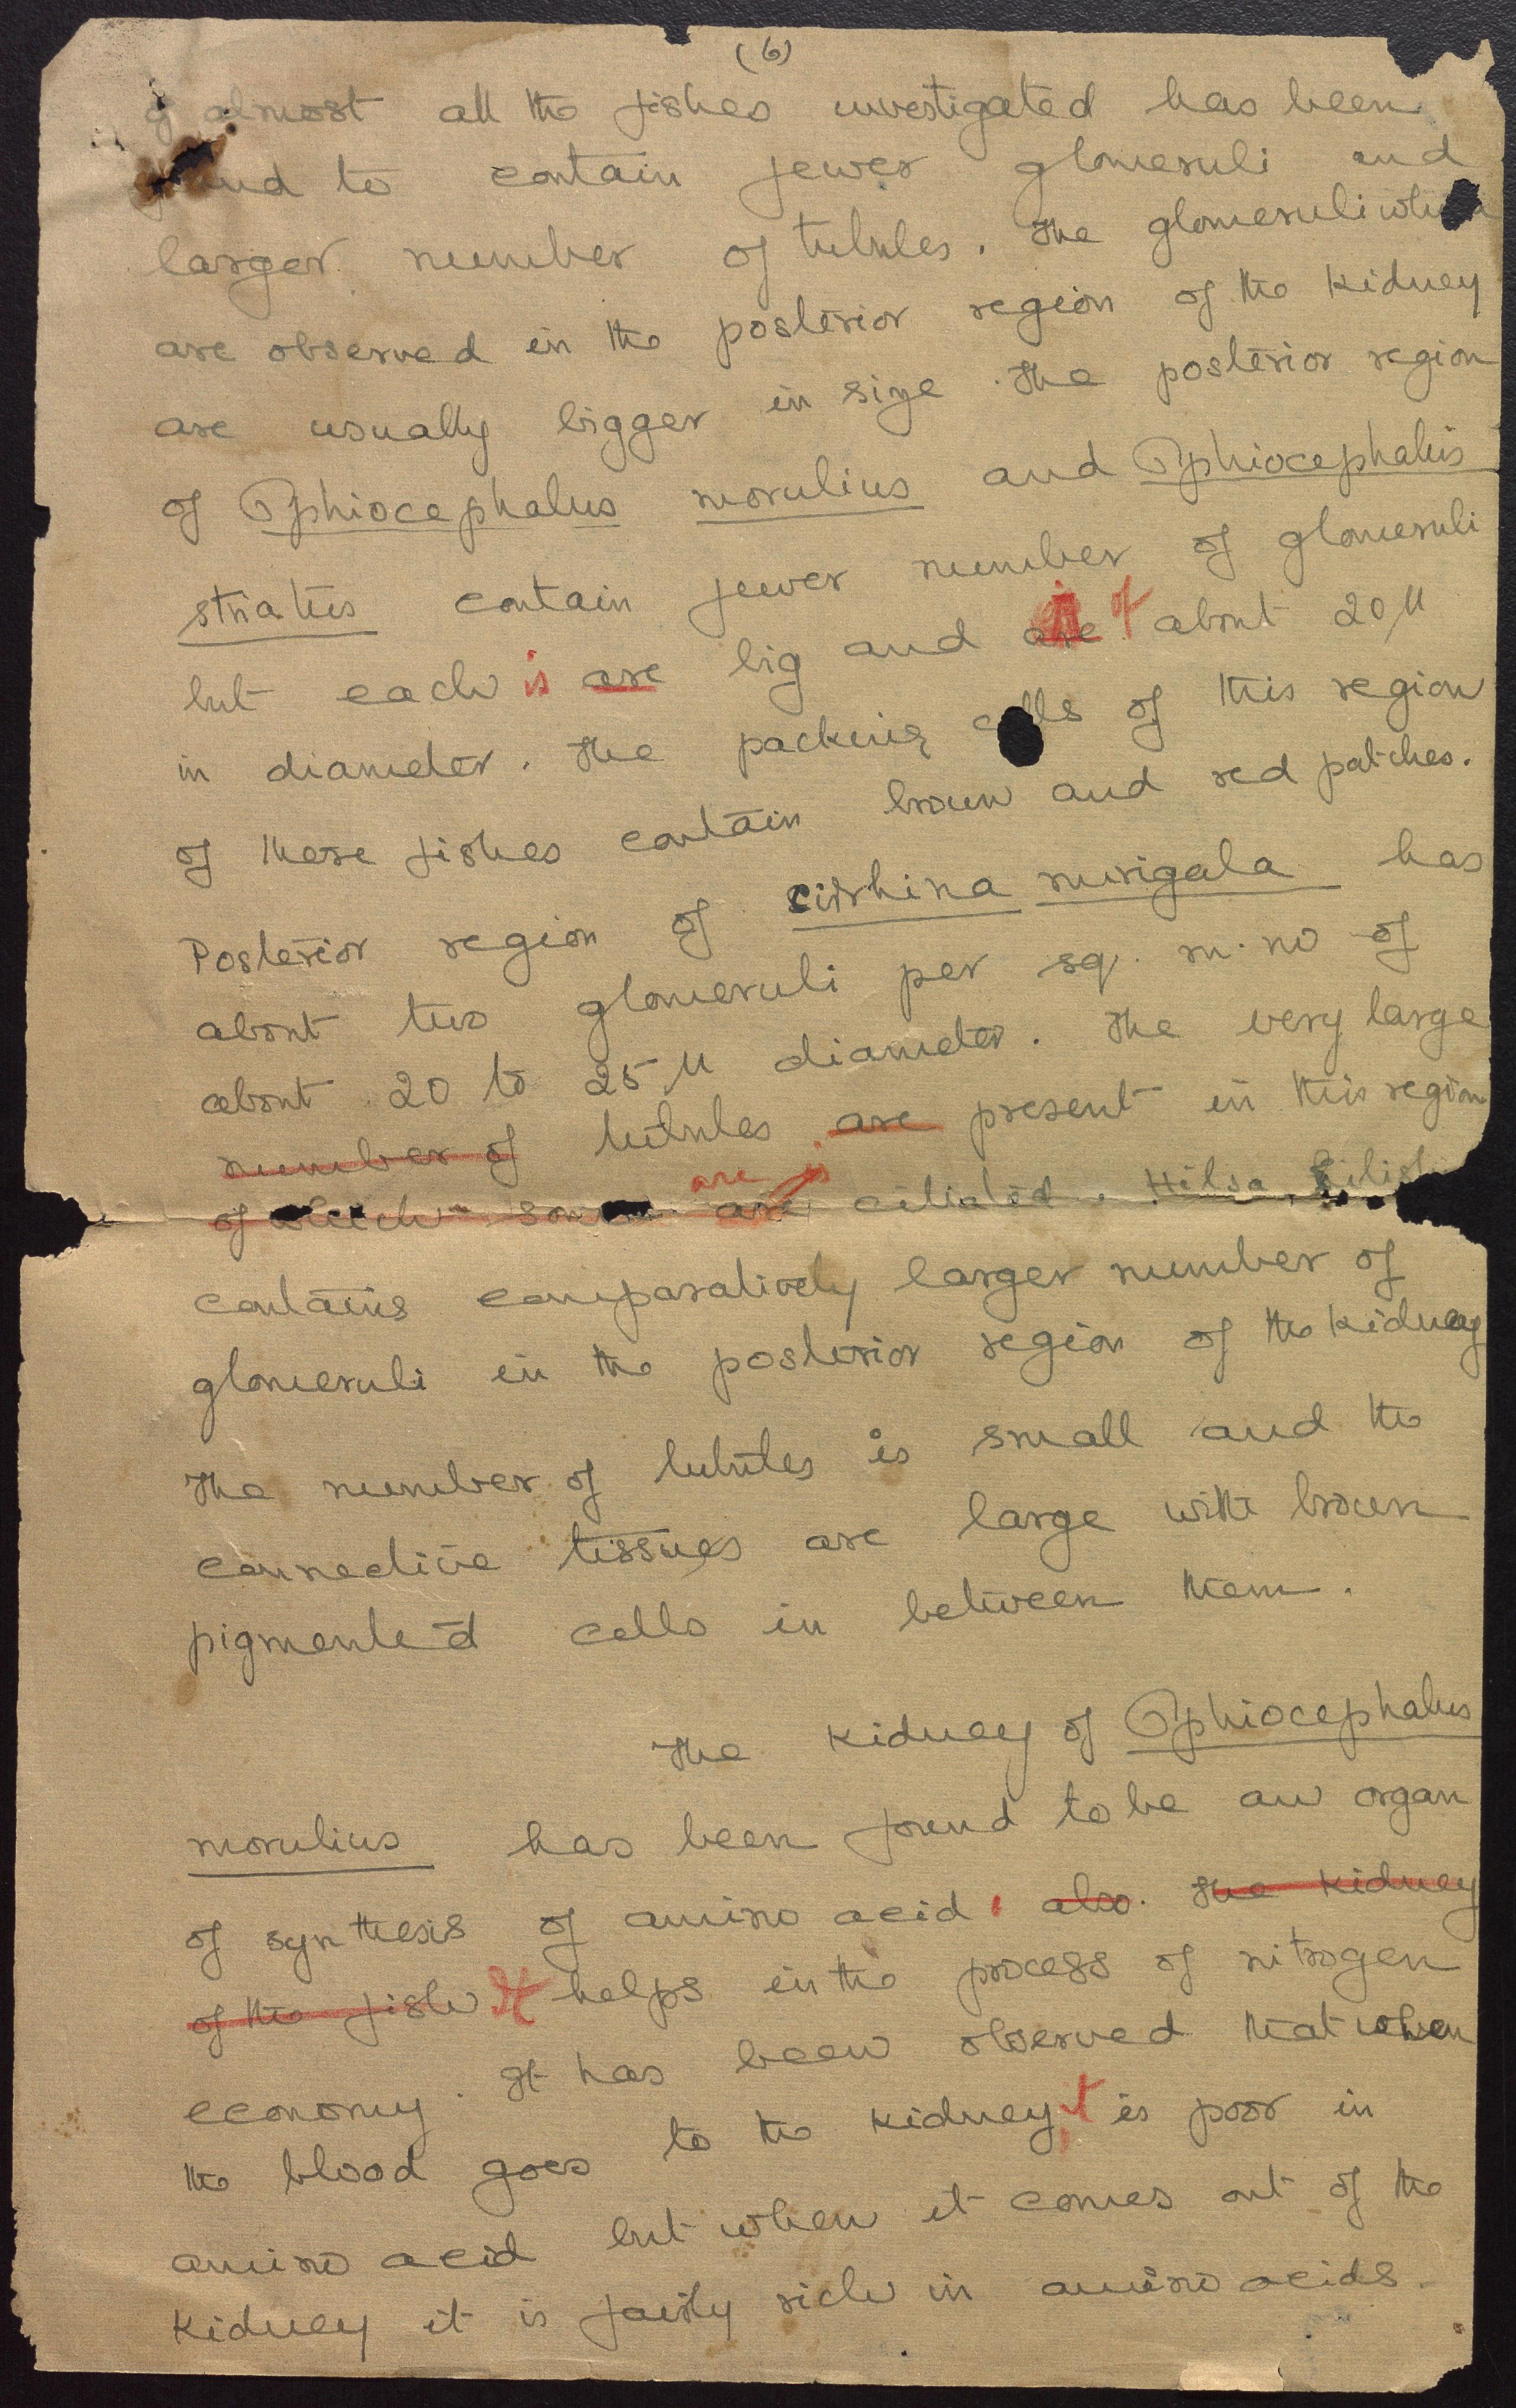 (6)
of almost all the fishes investigated has been
found to contain fewer glomeruli and
larger number of tubules. The glomeruli which
are observed in the posterior region of the kidney
are usually bigger in size. The posterior region
of Ophiocephalus morulius and Ophiocephalus
striatus contain fewer number of glomeruli
but each is are big and are of about 20 µ
in diameter. The packing cells of this region
of these fishes contain brown and red patches.
Posterior region of cirrhina mrigala has
about two glomeruli per sq. m.m of
about 20 to 25 µ diameter. The very large
number of tubules are present in this region
of which some are are ciliated. Hilsa ilisha
contains comparatively larger number of
glomeruli in the posterior region of the kidney
The number of tubules is small and the
connective tissues are large with brown
pigmented cells in between them.
The kidney of Ophiocephalus
morulius has been found to be an organ
of synthesis of amino acid. also. The kidney
of the fish It helps in the process of nitrogen
economy. It has been observed that when
the blood goes to the kidney, it is poor in
amino acid but when it comes out of the
kidney it is fairly rich in amino acids.